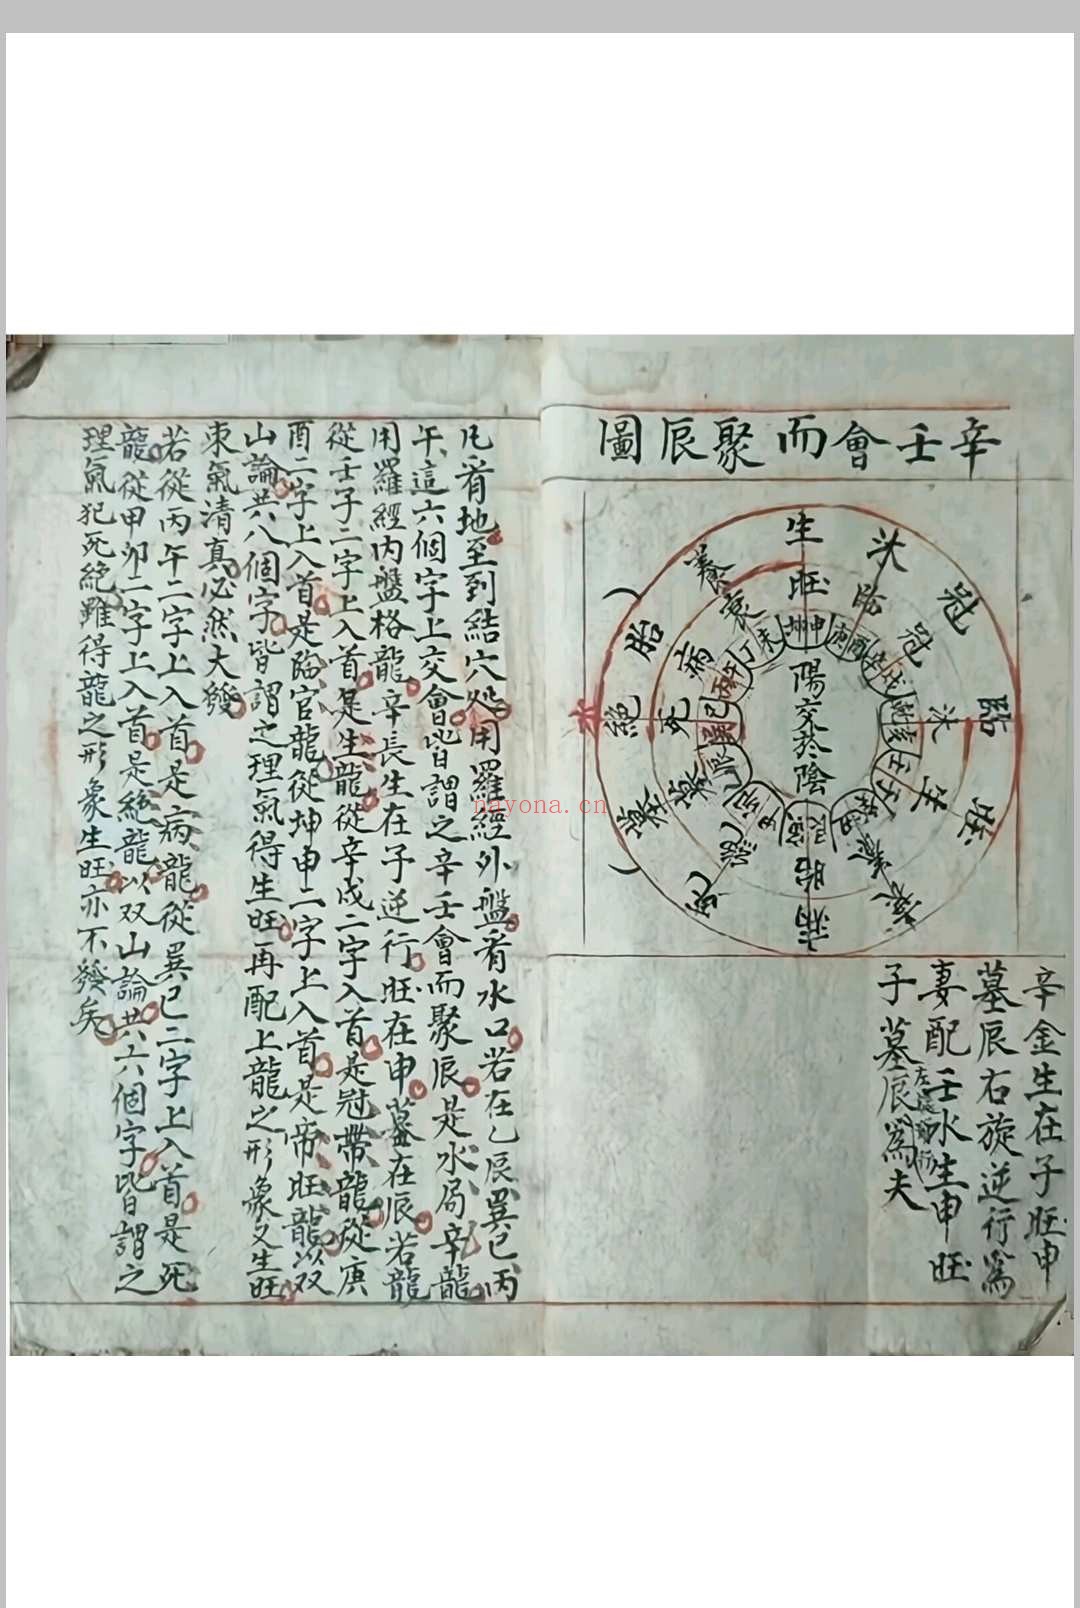 辛壬會而聚辰圖
生
沐
冠
臨
旺
衰
病
死
墓
絕
胎
養
水
旺
臨
冠
沐
生
養
胎
絕
墓
死
病
衰
坤申
庚酉
辛戌
乾亥
壬子
癸丑
艮寅
甲卯
乙辰
巽巳
丙午
丁未
陽交於陰
辛金生在子旺申
墓辰右旋逆行為
妻配壬水生申旺
子墓辰為夫
左旋順行
凡看地至到結穴處用羅經外盤看水口若在乙辰巽巳丙
午這六個字上交會皆謂之辛壬會而聚辰是水局辛龍
用羅經內盤格龍辛長生在子逆行旺在申墓在辰若龍
從壬子二字上入首是生龍從辛戌二字入首是冠帶龍從庚
酉二字上入首是臨官龍從坤申二字上入首是帝旺龍以双
山論共八個字皆謂之理氣得生旺再配上龍之形象又生旺
東氣清真必然大發
若從丙午二字上入首是病龍從巽巳二字上入首是死
龍從甲卯二字上入首是絕龍以双山論共六個字皆謂之
理氣犯死絕雖得龍之形象生旺亦不發矣
nayona.cn